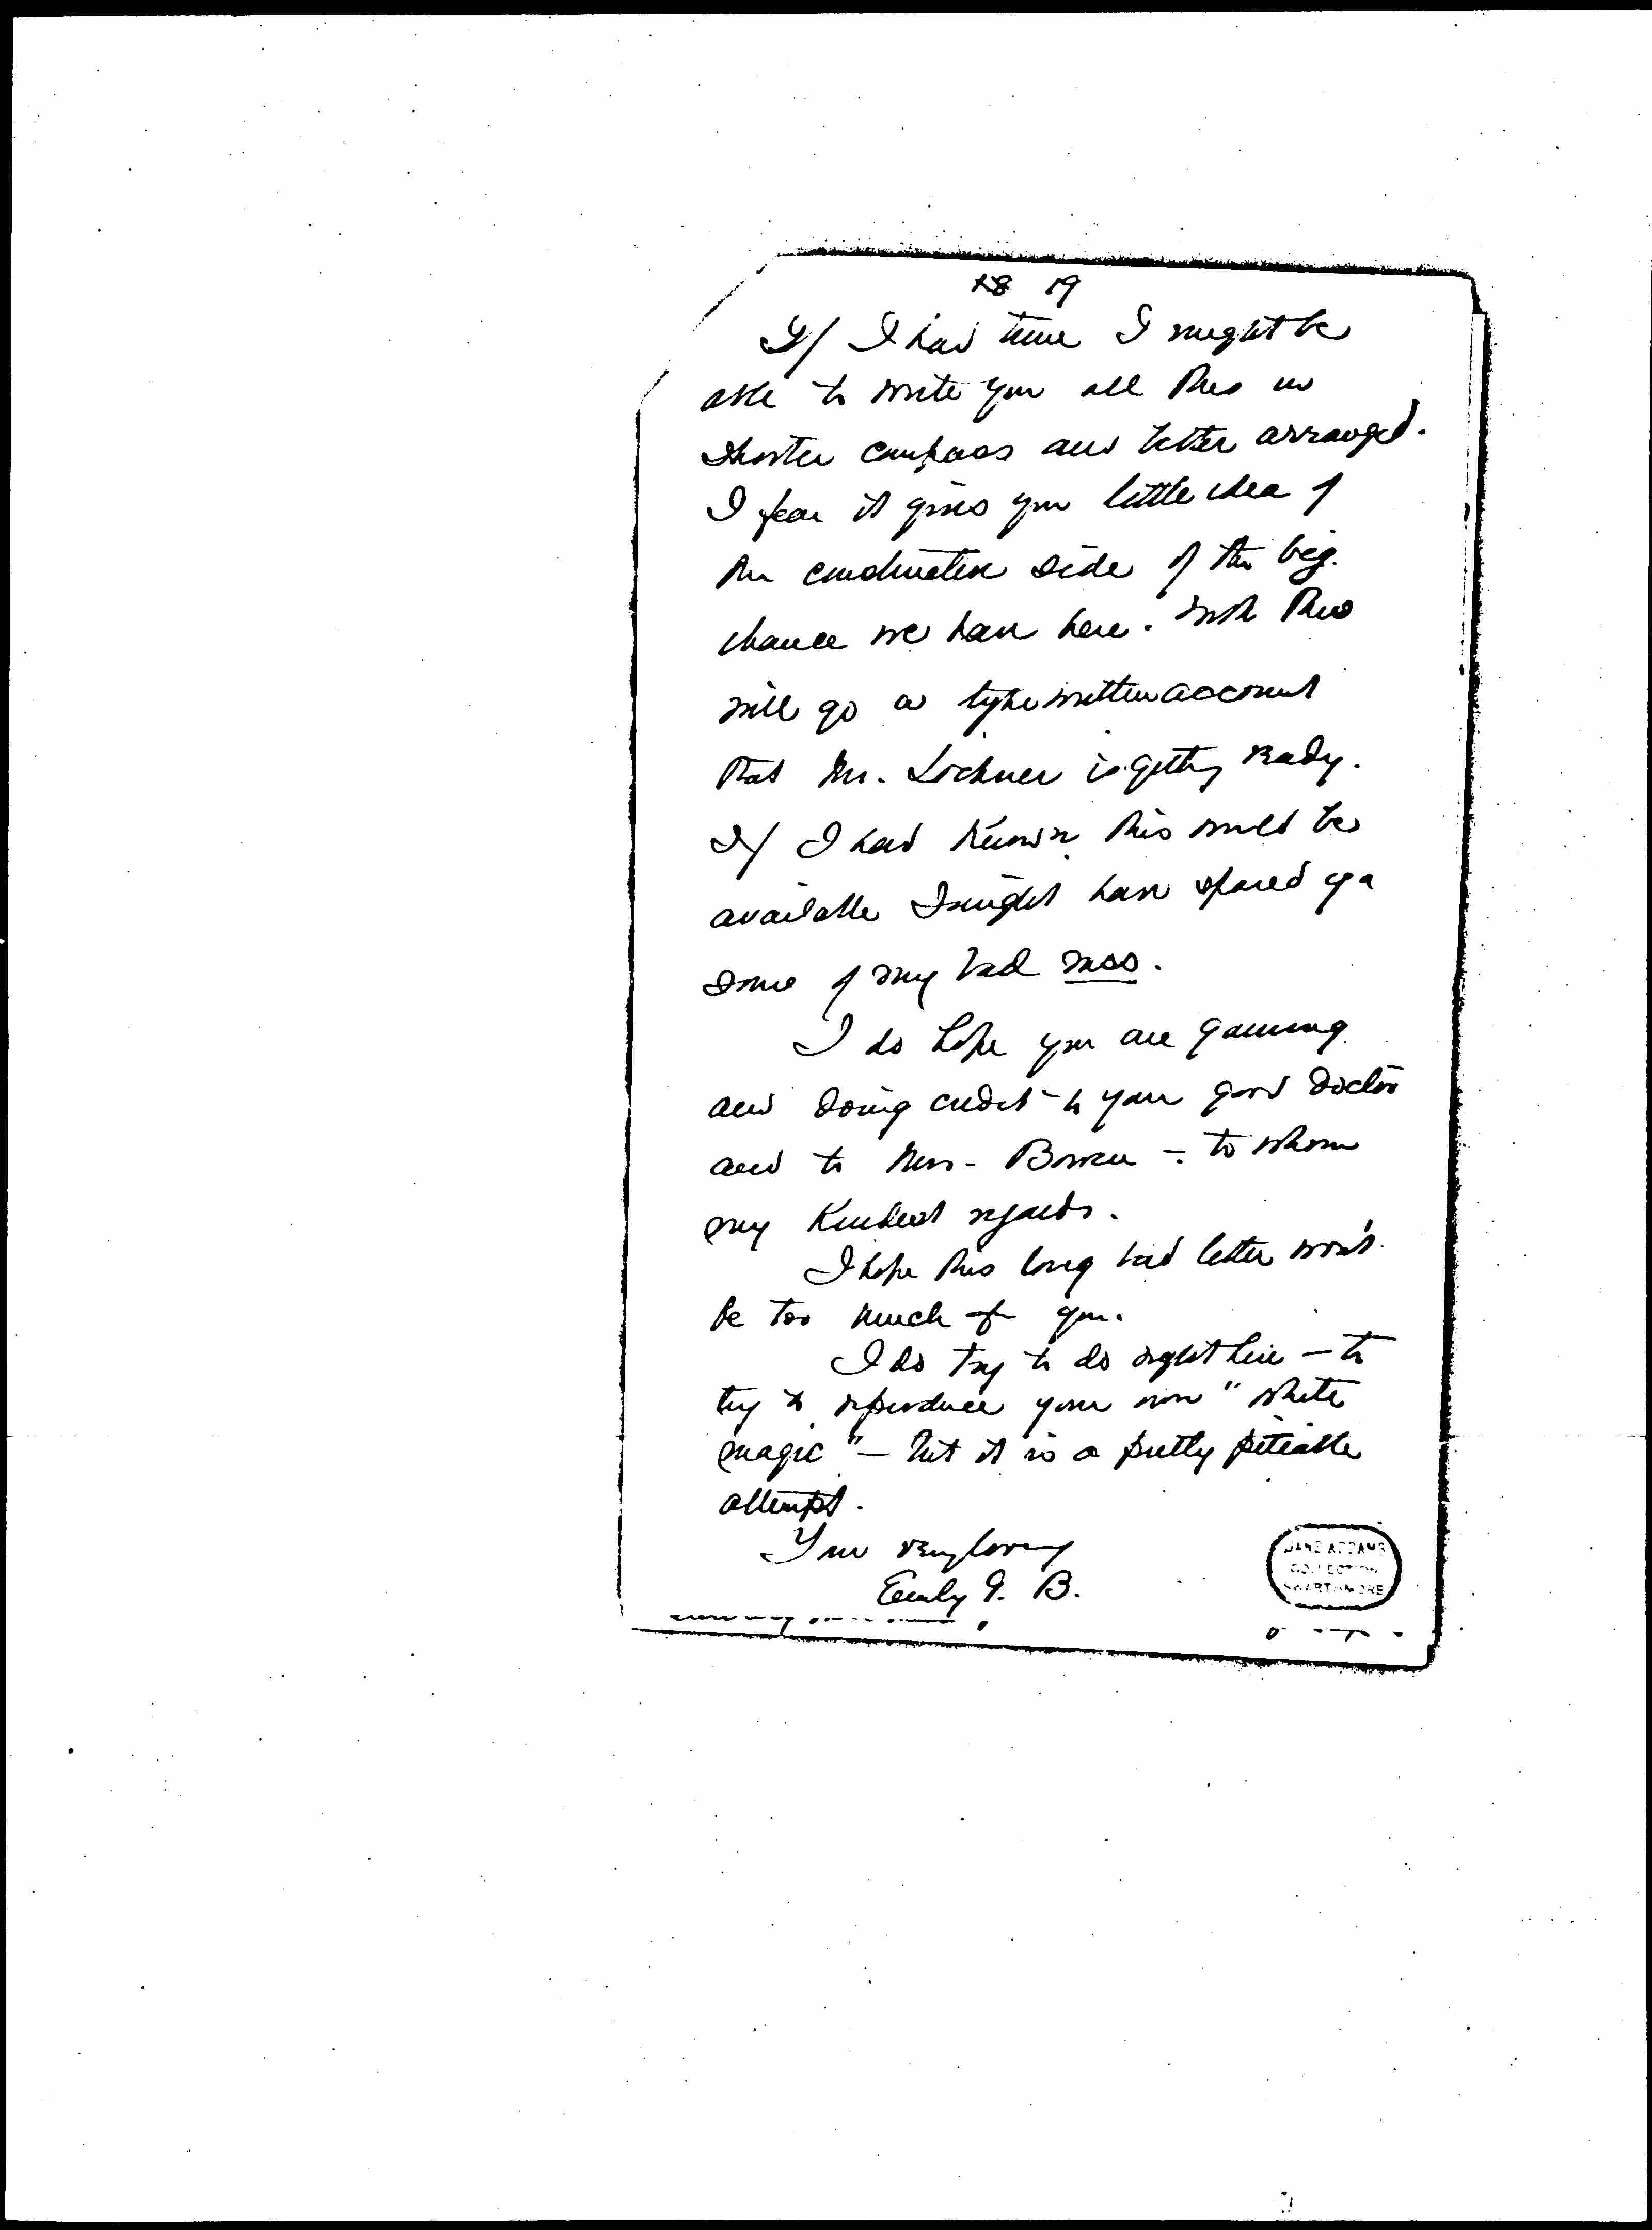 18 19
If I had time I might be
able to write you all this in
shorter compass and better arranged.
I fear it gives you little idea of
the constructive side of the big
chance we have here. With this
will go a typewritten account
that Mr. Lochner is getting ready.
If I had known this would be
available I might have spared you
some of my bad mss.
I do hope you are gaining
and doing credit to your good doctor
and to Mrs. Bowen – to whom
my kindest regards.
I hope this long bad letter won't
be too much for you.
I do try to do right here – to
try to reproduce your own "white
magic" – but it is a pretty pitiable
attempt.
Your very loving
Emily G. B.
JANE ADDAMS
COLLECTION
SWARTHMORE